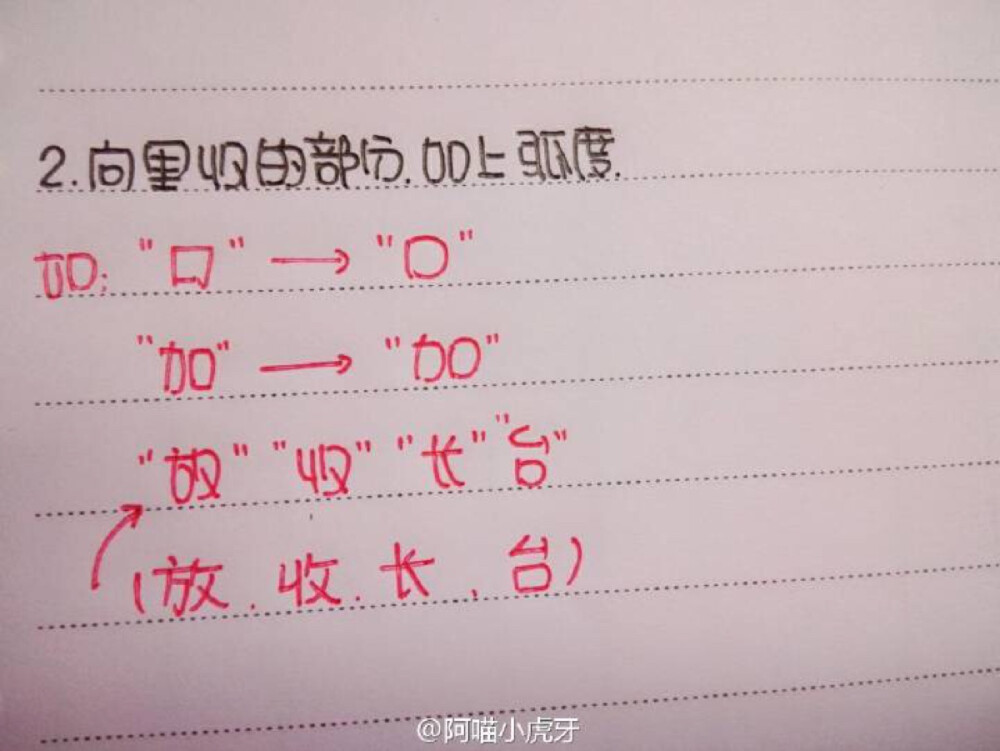 2.向里收的部分.加上弧度.
如:"口"→"口"
"加"→"加"
"放""收""长""台"
(放.收.长.台)
@阿喵小虎牙